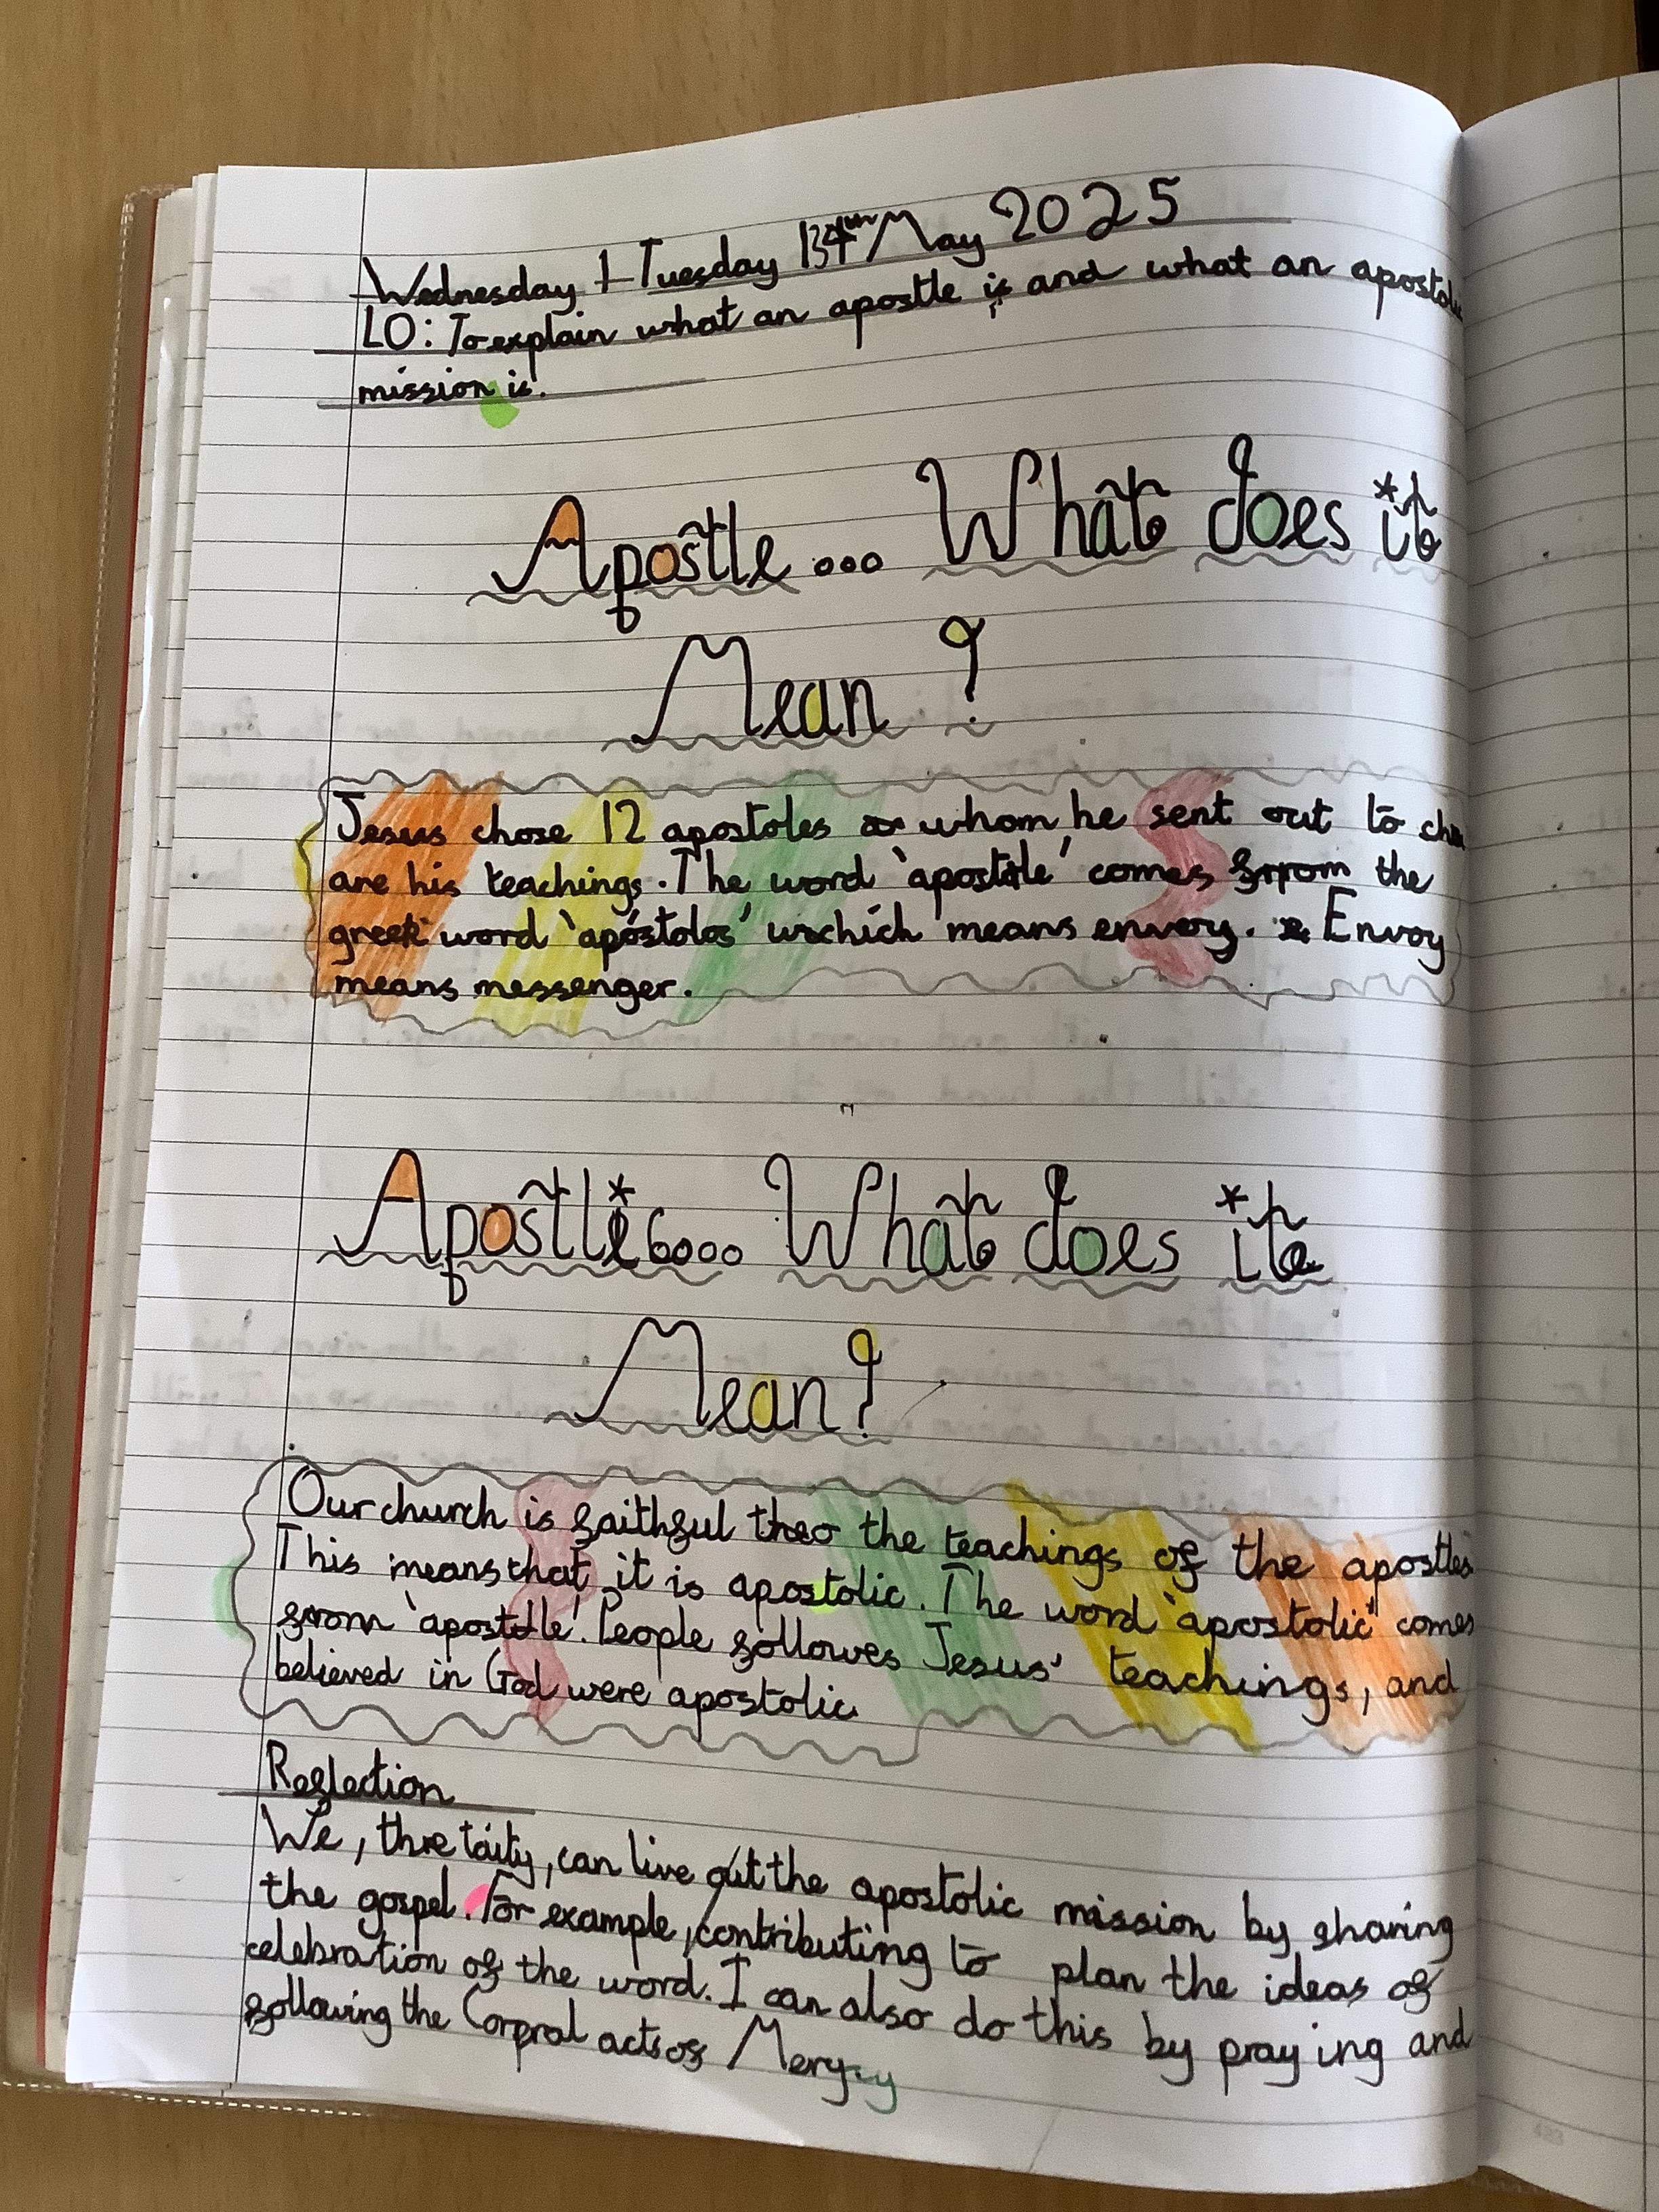 Wednesday 1 Tuesday 134th May 2025
LO: To explain what an apostle is and what an apostol
mission is.
Apostle... What does it
Mean?
Jesus chose 12 apostoles whom he sent out to
are his teachings. The word 'apostle' comes from the
greek word 'apóstolos' which means envoy. Envoy
means messenger.
Apostlic... What does it
Mean?
Our church is faithful to the teachings of the apostles
This means that it is apostolic. The word 'apostolic' comes
from 'apostle'. People follows Jesus' teachings, and
believed in God were apostolic
Reflection
We, the laity, can live out the apostolic mission by sharing
the gospel. For example, contributing to plan the ideas of
celebration of the word. I can also do this by praying and
following the Corpral acts of Mercy